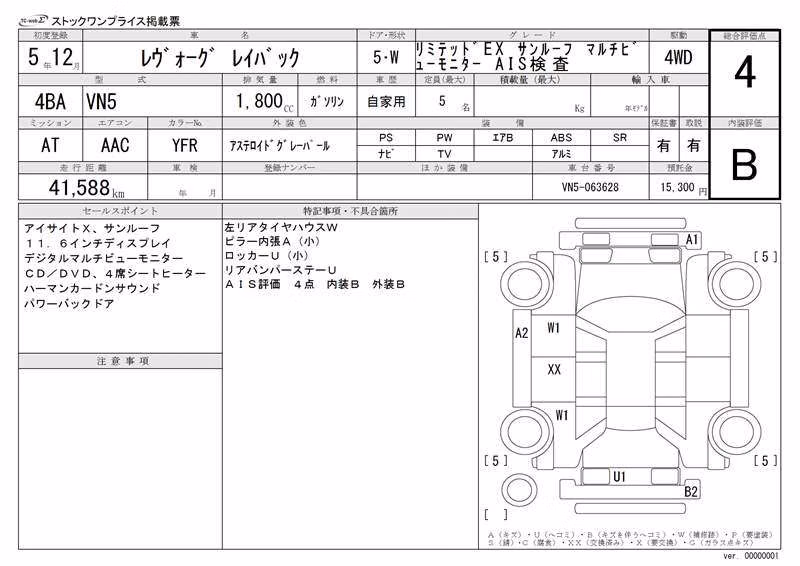 TC-webΣ ストックワンプライス掲載票
初度登録 車名 ドア・形状 グレード 駆動 総合評価点
5年12月 レヴォーグ レイバック 5・W リミテッドEX サンルーフ マルチビューモニター AIS検査 4WD 4
型式 排気量 燃料 車歴 定員(最大) 積載量(最大) 輸入車
4BA VN5 1,800CC ガソリン 自家用 5名 Kg 年モデル
ミッション エアコン カラーNo. 外装色 装備 保証書 取説 内装評価
AT AAC YFR アステロイドグレーパール PS PW エアB ABS SR 有 有 B
ナビ TV アルミ
走行距離 車検 登録ナンバー ほか装備 車台番号 預託金
41,588km 年 月 VN5-063628 15,300円
セールスポイント
アイサイトX、サンルーフ
11.6インチディスプレイ
デジタルマルチビューモニター
CD/DVD、4席シートヒーター
ハーマンカードンサウンド
パワーバックドア
注意事項
特記事項・不具合箇所
左リアタイヤハウスW
ピラー内張A(小)
ロッカーU(小)
リアバンパーステーU
AIS評価 4点 内装B 外装B
A1
[5] [5]
A2 W1
XX
W1
[5] [5]
U1
B2
[ ]
A(キズ)・U(ヘコミ)・B(キズを伴うヘコミ)・W(補修跡)・P(要塗装)
S(錆)・C(腐食)・XX(交換済み)・X(要交換)・G(ガラス点キズ)
ver. 00000001